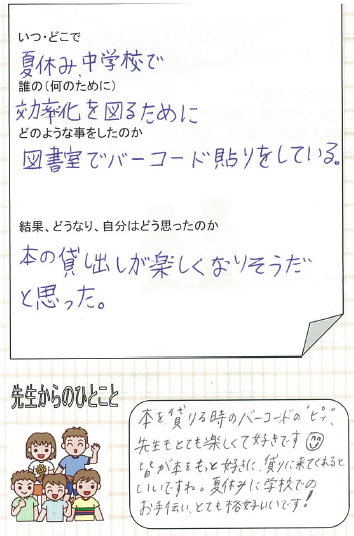 いつ・どこで
夏休み、中学校で
誰の(何のために)
効率化を図るために
どのような事をしたのか
図書室でバーコード貼りをしている。
結果、どうなり、自分はどう思ったのか
本の貸し出しが楽しくなりそうだ
と思った。
先生からのひとこと
本を貸りる時のバーコードの"ピッ"、
先生もとても楽しくて好きです
皆が本をもっと好きに、貸りに来てくれると
いいですね。夏休みに学校での
お手伝い、とても格好いいです!